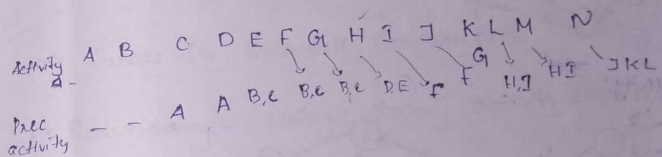 Activity A B C D E F G H I J K L M N
Prec activity - - A A B,C B,C B,C D,E F F G H,I H I J K L